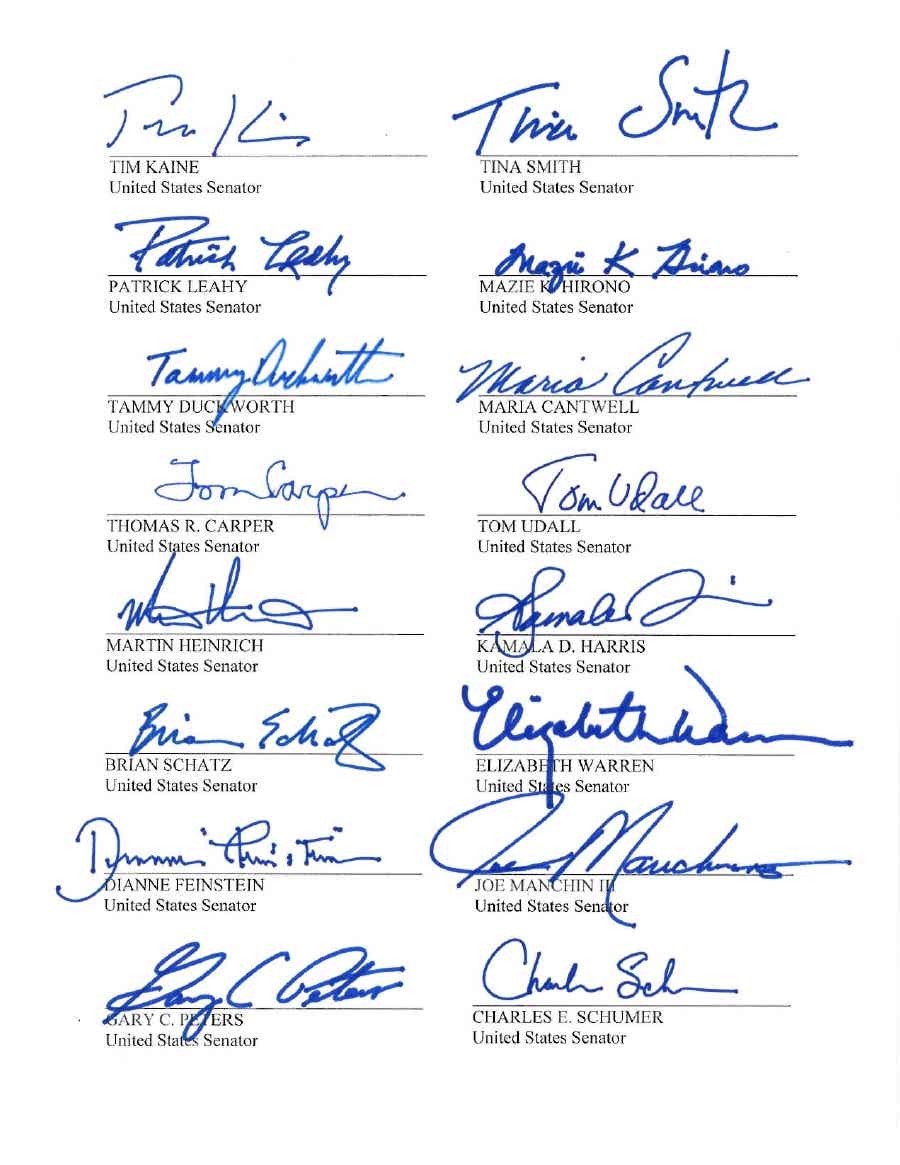 Tim Kaine
TIM KAINE
United States Senator
Tina Smith
TINA SMITH
United States Senator
Patrick Leahy
PATRICK LEAHY
United States Senator
Mazie K Hirono
MAZIE K HIRONO
United States Senator
Tammy Duckworth
TAMMY DUCKWORTH
United States Senator
Maria Cantwell
MARIA CANTWELL
United States Senator
Tom Carper
THOMAS R. CARPER
United States Senator
Tom Udall
TOM UDALL
United States Senator
MARTIN HEINRICH
United States Senator
Kamala
KAMALA D. HARRIS
United States Senator
Brian Schatz
BRIAN SCHATZ
United States Senator
Elizabeth Warren
ELIZABETH WARREN
United States Senator
DIANNE FEINSTEIN
United States Senator
Joe Manchin
JOE MANCHIN III
United States Senator
Gary C Peters
GARY C. PETERS
United States Senator
CHARLES E. SCHUMER
United States Senator